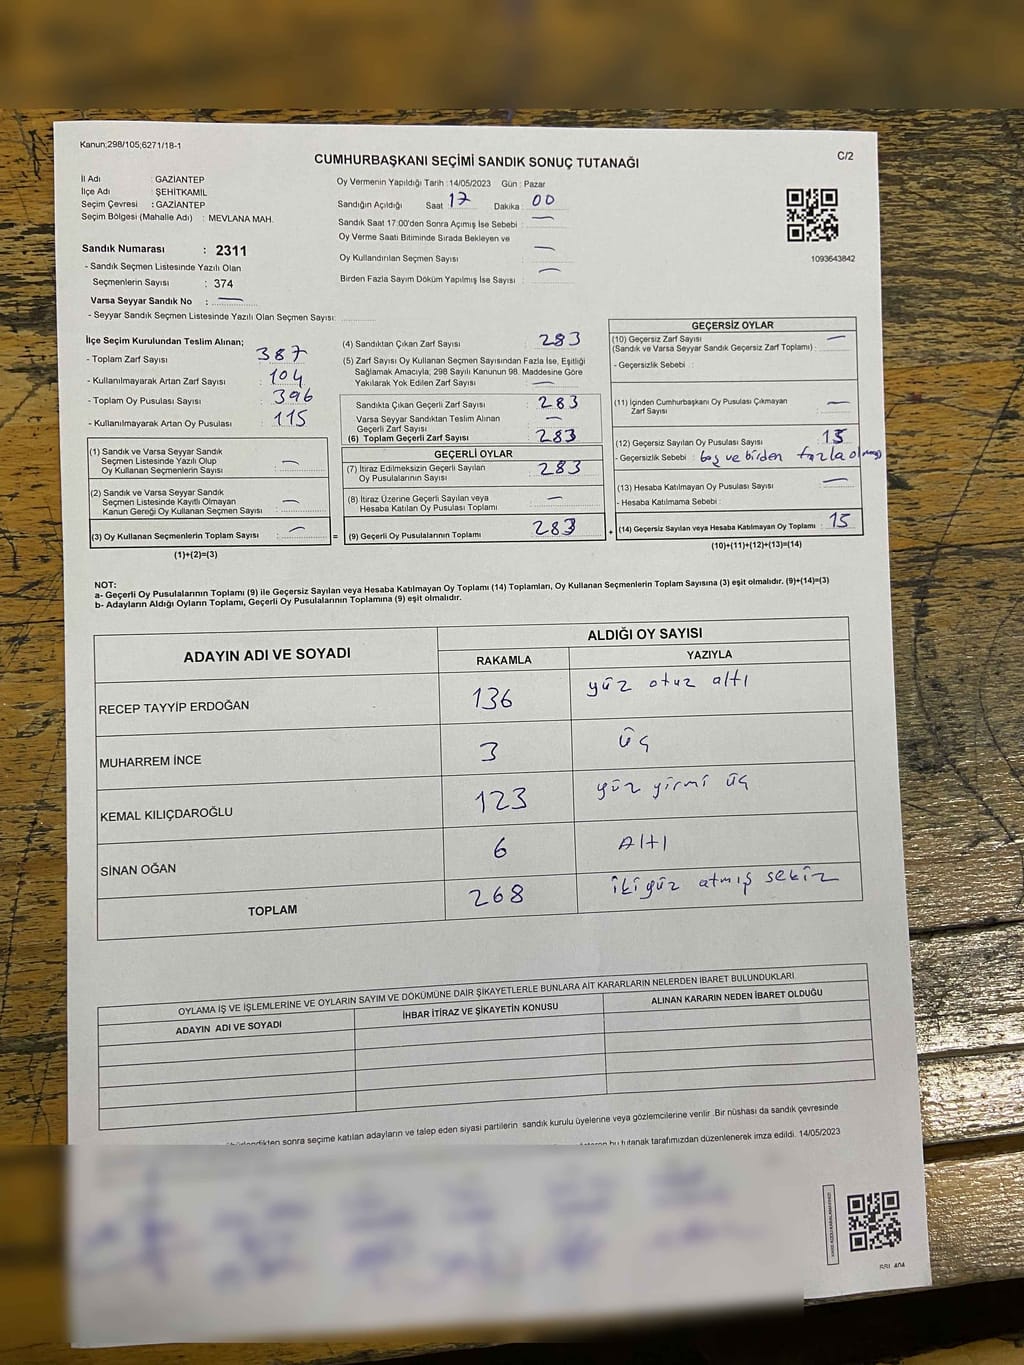 Kanun;298/105;6271/18-1
CUMHURBAŞKANI SEÇİMİ SANDIK SONUÇ TUTANAĞI
C/2
İl Adı : GAZİANTEP
İlçe Adı : ŞEHİTKAMİL
Seçim Çevresi : GAZİANTEP
Seçim Bölgesi (Mahalle Adı) : MEVLANA MAH.
Sandık Numarası : 2311
- Sandık Seçmen Listesinde Yazılı Olan
Seçmenlerin Sayısı : 374
Varsa Seyyar Sandık No : —
- Seyyar Sandık Seçmen Listesinde Yazılı Olan Seçmen Sayısı:
Oy Vermenin Yapıldığı Tarih :14/05/2023 Gün : Pazar
Sandığın Açıldığı Saat 17 Dakika : 00
Sandık Saat 17:00'den Sonra Açımış İse Sebebi : —
Oy Verme Saati Bitiminde Sırada Bekleyen ve
Oy Kullandırılan Seçmen Sayısı : —
Birden Fazla Sayım Döküm Yapılmış İse Sayısı : —
1093643842
İlçe Seçim Kurulundan Teslim Alınan;
- Toplam Zarf Sayısı : 387
- Kullanılmayarak Artan Zarf Sayısı : 104
- Toplam Oy Pusulası Sayısı : 396
- Kullanılmayarak Artan Oy Pusulası : 115
(1) Sandık ve Varsa Seyyar Sandık
Seçmen Listesinde Yazılı Olup
Oy Kullanan Seçmenlerin Sayısı : —
(2) Sandık ve Varsa Seyyar Sandık
Seçmen Listesinde Kayıtlı Olmayan
Kanun Gereği Oy Kullanan Seçmen Sayısı : —
(3) Oy Kullanan Seçmenlerin Toplam Sayısı : —
(1)+(2)=(3)
(4) Sandıktan Çıkan Zarf Sayısı : 283
(5) Zarf Sayısı Oy Kullanan Seçmen Sayısından Fazla İse, Eşitliği
Sağlamak Amacıyla; 298 Sayılı Kanunun 98. Maddesine Göre
Yakılarak Yok Edilen Zarf Sayısı : —
Sandıkta Çıkan Geçerli Zarf Sayısı : 283
Varsa Seyyar Sandıktan Teslim Alınan
Geçerli Zarf Sayısı : —
(6) Toplam Geçerli Zarf Sayısı : 283
GEÇERLİ OYLAR
(7) İtiraz Edilmeksizin Geçerli Sayılan
Oy Pusulasının Sayısı : 283
(8) İtiraz Üzerine Geçerli Sayılan veya
Hesaba Katılan Oy Pusulası Toplamı : —
= (9) Geçerli Oy Pusulalarının Toplamı : 283
GEÇERSİZ OYLAR
(10) Geçersiz Zarf Sayısı
(Sandık ve Varsa Seyyar Sandık Geçersiz Zarf Toplamı) : —
- Geçersizlik Sebebi :
(11) İçinden Cumhurbaşkanı Oy Pusulası Çıkmayan
Zarf Sayısı : —
(12) Geçersiz Sayılan Oy Pusulası Sayısı : 15
- Geçersizlik Sebebi : boş ve birden fazla
(13) Hesaba Katılmayan Oy Pusulası Sayısı : —
- Hesaba Katılmama Sebebi :
+ (14) Geçersiz Sayılan veya Hesaba Katılmayan Oy Toplamı : 15
(10)+(11)+(12)+(13)=(14)
NOT:
a- Geçerli Oy Pusulalarının Toplamı (9) ile Geçersiz Sayılan veya Hesaba Katılmayan Oy Toplamı (14) Toplamları, Oy Kullanan Seçmenlerin Toplam Sayısına (3) eşit olmalıdır. (9)+(14)=(3)
b- Adayların Aldığı Oyların Toplamı, Geçerli Oy Pusulalarının Toplamına (9) eşit olmalıdır.
ADAYIN ADI VE SOYADI
ALDIĞI OY SAYISI
RAKAMLA YAZIYLA
RECEP TAYYİP ERDOĞAN 136 yüz otuz altı
MUHARREM İNCE 3 üç
KEMAL KILIÇDAROĞLU 123 yüz yirmi üç
SİNAN OĞAN 6 Altı
TOPLAM 268 ikiyüz atmış sekiz
OYLAMA İŞ VE İŞLEMLERİNE VE OYLARIN SAYIM VE DÖKÜMÜNE DAİR ŞİKAYETLERLE BUNLARA AİT KARARLARIN NELERDEN İBARET BULUNDUKLARI
ADAYIN ADI VE SOYADI İHBAR İTİRAZ VE ŞİKAYETİN KONUSU ALINAN KARARIN NEDEN İBARET OLDUĞU
sonra seçime katılan adayların ve talep eden siyasi partilerin sandık kurulu üyelerine veya gözlemcilerine verilir. Bir nüshası da sandık çevresinde
bu tutanak tarafımızdan düzenlenerek imza edildi. 14/05/2023